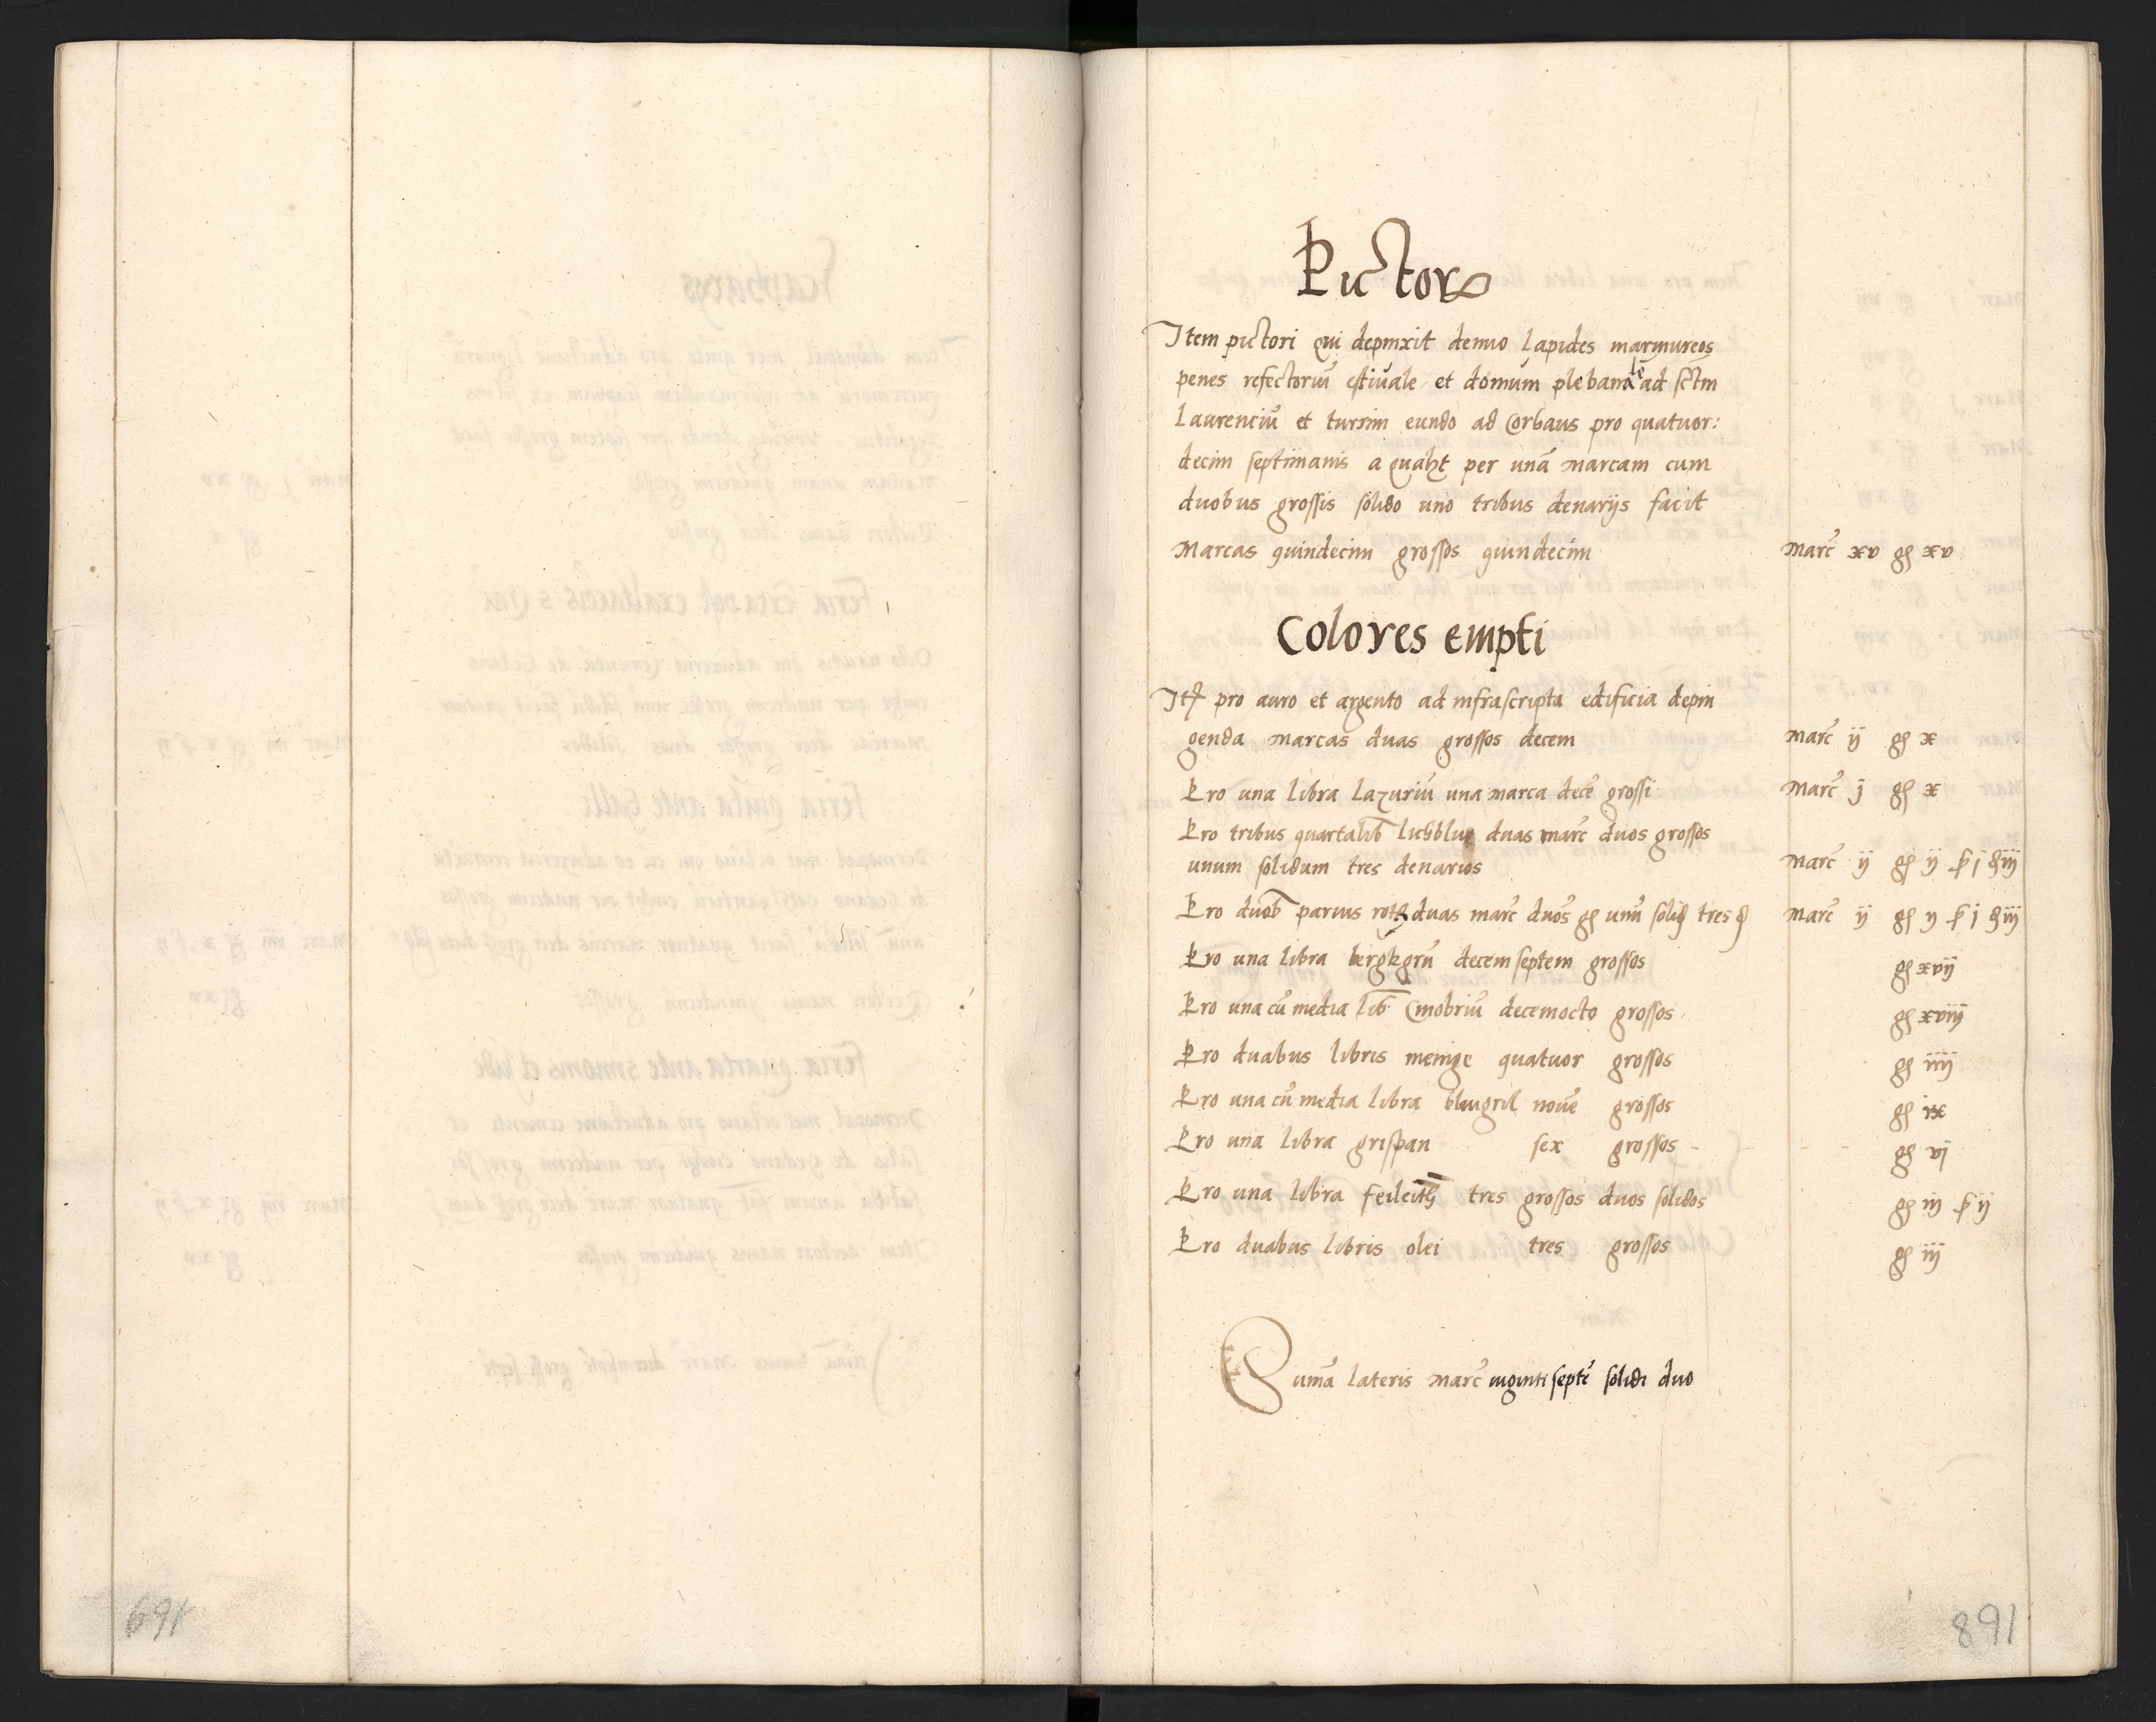 Pictor
Item pictori qui depinxit denuo lapides marmureos
penes refectoriũ estiuale et domum plebanalẽ ad sctm
Laurenciũ et turrim eundo ad Corbaus pro quatuor:
decim septimanis a qualꝫt per unã marcam cum
duobus grossis solido uno tribus denarijs facit
Marcas quindecim grossos quindecim marc̃ xv gꝭ xv
Colores empti
Itꝭ pro auro et argento ad infrascripta edificia depin
genda marcas duas grossos decem marc̃ ij gꝭ x
Pro una libra lazuriũ una marca decẽ grossi marc̃ j gꝭ x
Pro tribus quartalib̃ lichblue duas marc̃ duos grossos
unum solidum tres denarios marc̃ ij gꝭ ij ẜ j ꝺ iij
Pro duob̃ parius duas marc̃ duos gꝭ unũ soliꝺ tres ꝺ marc̃ ij gꝭ ij ẜ j ꝺ iij
Pro una libra bergkgrũ decemseptem grossos gꝭ xvij
Pro una cũ media lib̃ Cinobriũ decemocto grossos gꝭ xviij
Pro duabus libris menige quatuor grossos gꝭ iiij
Pro una cũ media libra nouẽ grossos gꝭ ix
Pro una libra grispan sex grossos gꝭ vj
Pro una libra tres grossos duos solidos gꝭ iij ẜ ij
Pro duabus libris olei tres grossos gꝭ iij
Sum̃a lateris marc̃ viginti septẽ solidi duo
169
168